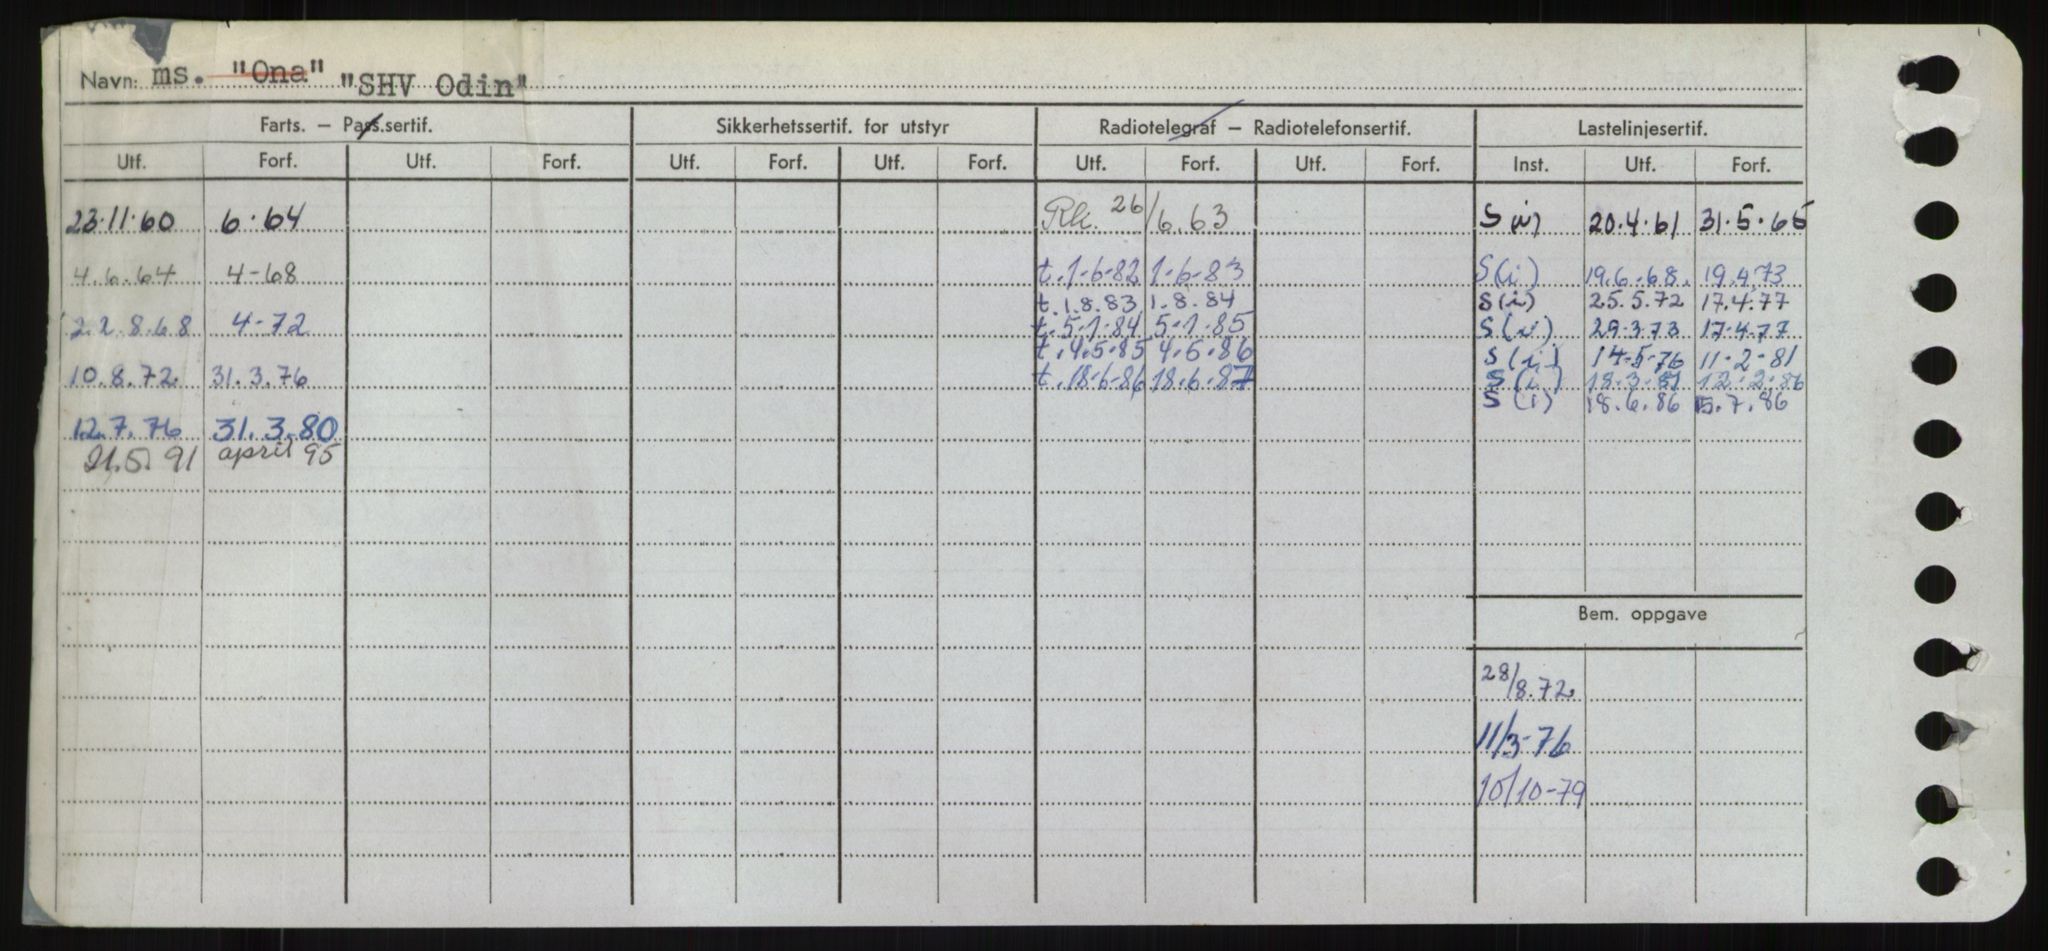 Navn: ms. "Ona" "SHV Odin"
Farts. – Pass.sertif. Sikkerhetssertif. for utstyr Radiotelegraf – Radiotelefonsertif. Lastelinjesertif.
Utf. Forf. Utf. Forf. Utf. Forf. Utf. Forf. Utf. Forf. Utf. Forf. Inst. Utf. Forf.
23.11.60 6.64 26/6.63 S(i) 20.4.61 31.5.65
4.6.64 4-68 t.1-6-82 1-6-83 S(i) 19.6.68. 19.4.73
t.1.8.83 1.8.84 S(i) 25.5.72 17.4.77
22.8.68 4-72 t.5.1.84 5.1.85 S(i) 29.3.73 17.4.77
t.4.5.85 4.5.86 S(i) 14-5-76 11-2-81
10.8.72. 31.3.76 t.18-6-86 18.6.87 S(i) 18.3.81 12.2.86
S(i) 18.6.86 15.7.86
12.7.76 31.3.80
21.5.91 april 95
Bem. oppgave
28/8.72.
11/3-76
10/10-79